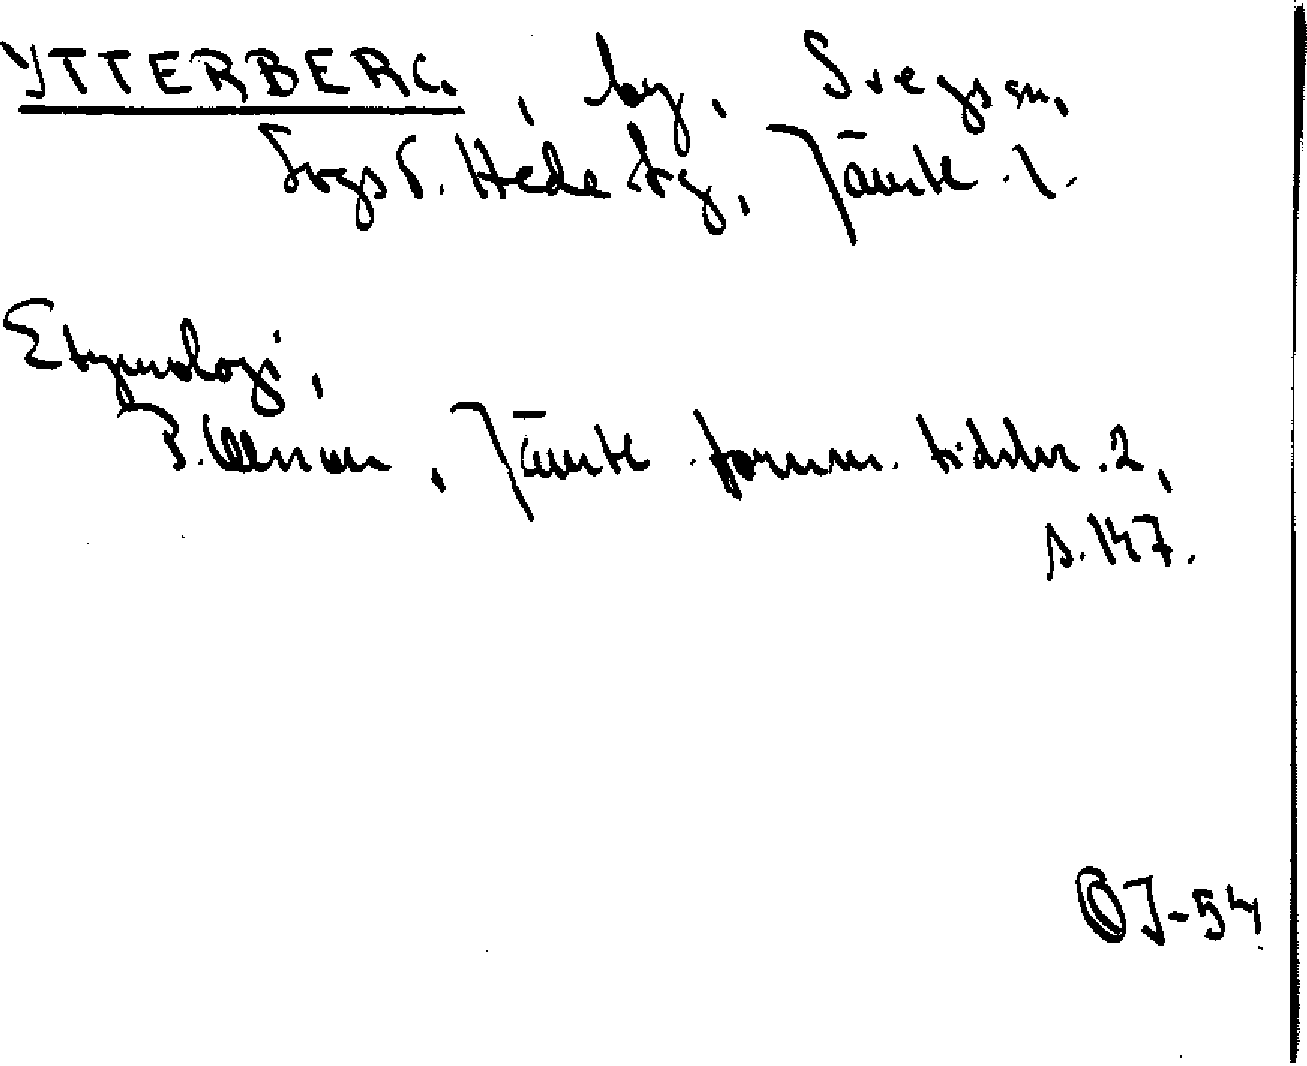 YTTERBERG, by, Svegs sn,
Svegs t. Hede tg, Jämtl. l.
Etymologi,
P. Olsson, Jämtl. fornm. tidskr. 2,
s. 147.
OJ-54